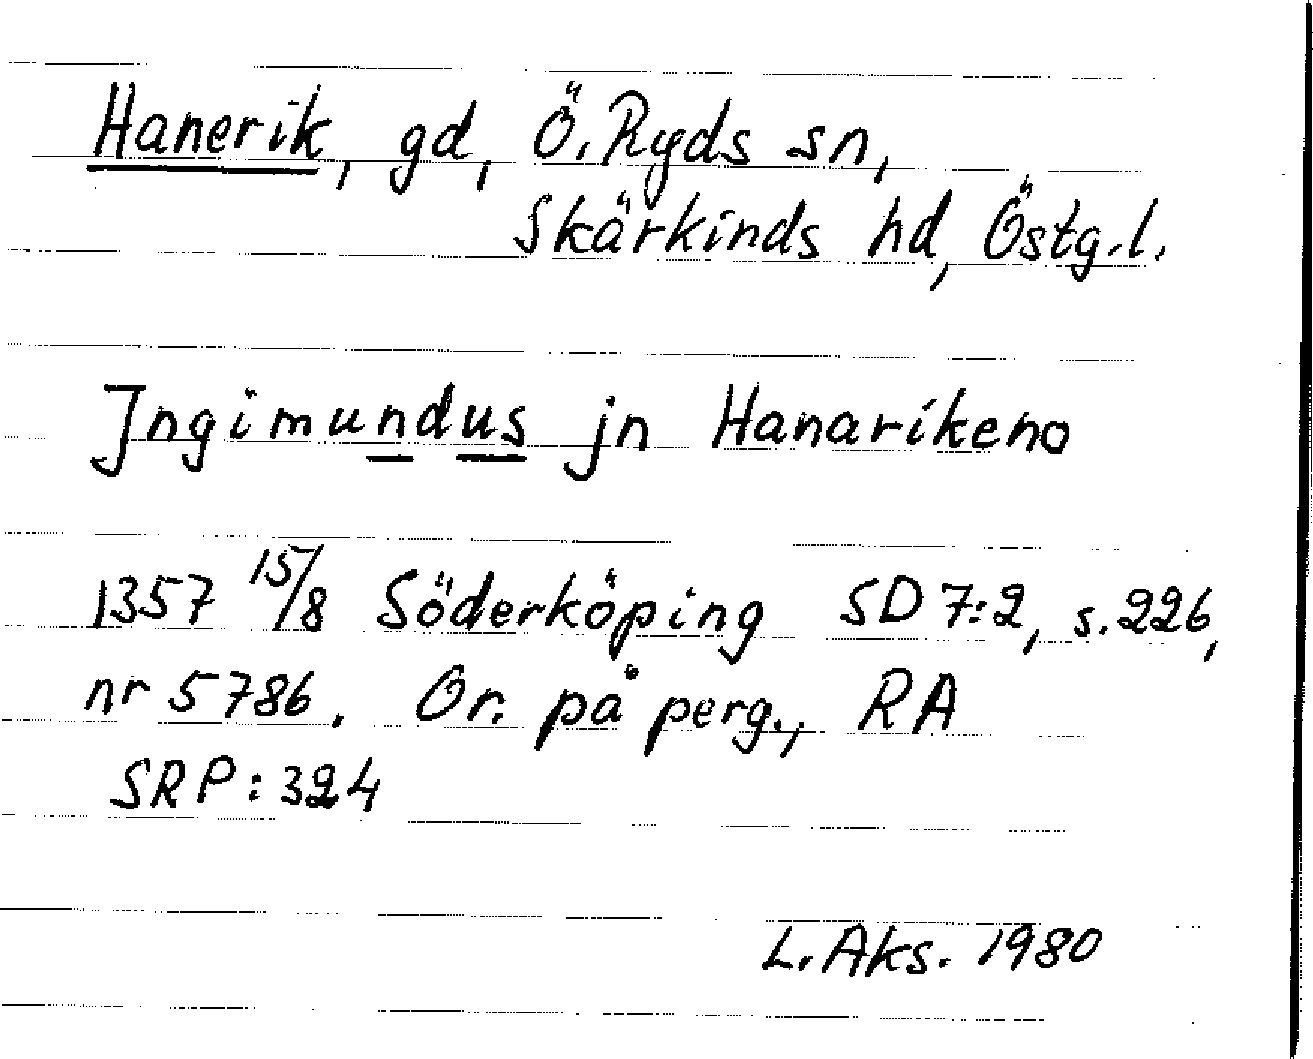 Hanerik, gd, Ö. Ryds sn,
Skärkinds hd, Östg.l.
Jngimundus jn Hanarikeno
1357 15/8 Söderköping SD 7:2, s. 226,
nr 5786. Or. på perg., RA
SRP: 324
L. Aks. 1980